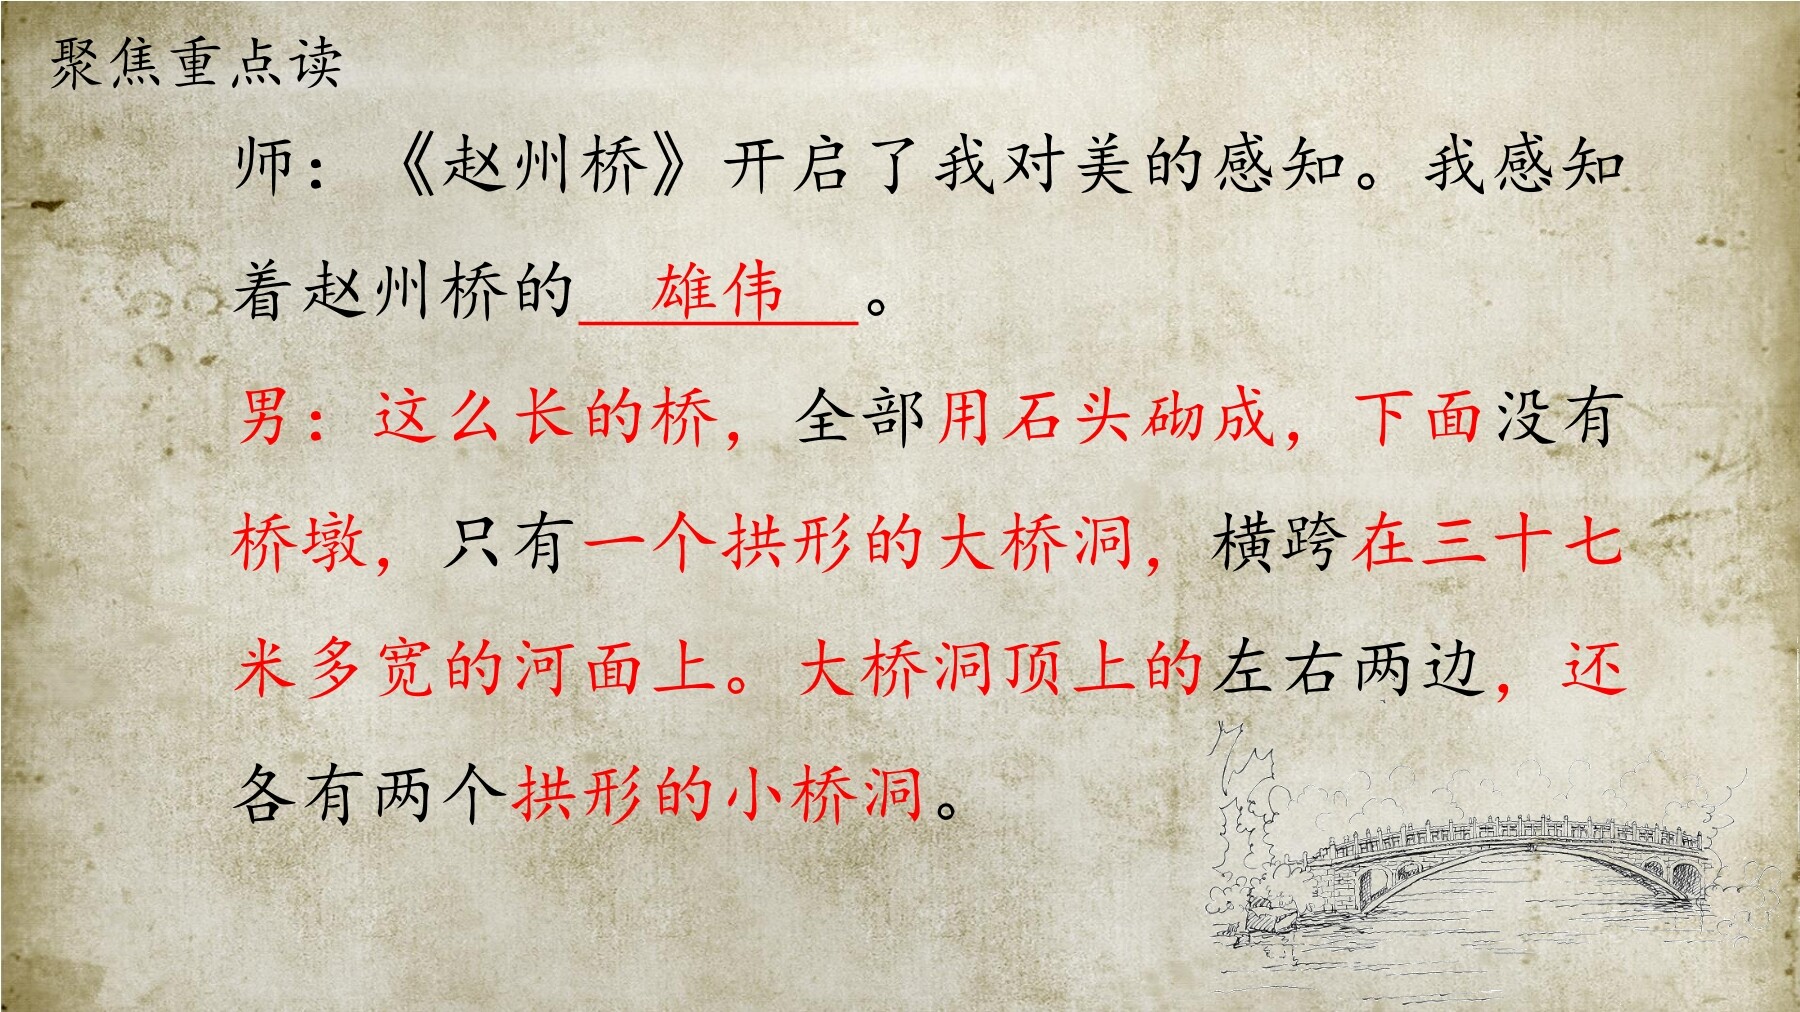 聚焦重点读
师：《赵州桥》开启了我对美的感知。我感知
着赵州桥的 雄伟 。
男：这么长的桥，全部用石头砌成，下面没有
桥墩，只有一个拱形的大桥洞，横跨在三十七
米多宽的河面上。大桥洞顶上的左右两边，还
各有两个拱形的小桥洞。